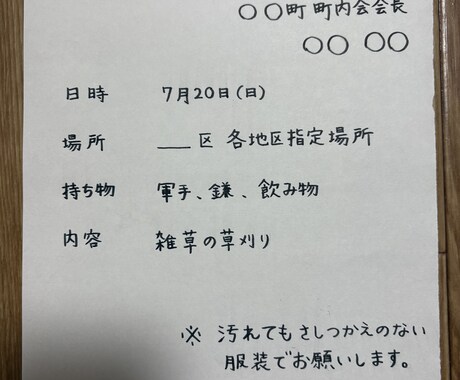 〇〇町 町内会会長
〇〇 〇〇
日時 7月20日(日)
場所 ___区 各地区指定場所
持ち物 軍手、鎌、飲み物
内容 雑草の草刈り
※ 汚れてもさしつかえのない
服装でお願いします。